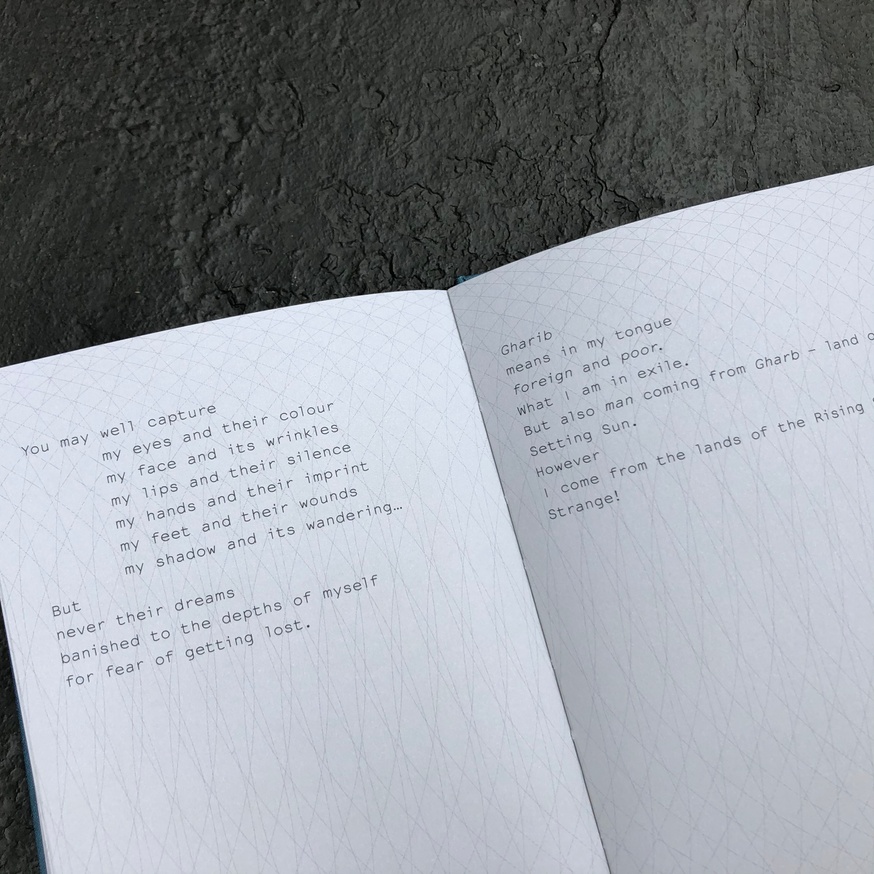 You may well capture
my eyes and their colour
my face and its wrinkles
my lips and their silence
my hands and their imprint
my feet and their wounds
my shadow and its wandering…
But
never their dreams
banished to the depths of myself
for fear of getting lost.
Gharib
means in my tongue
foreign and poor.
What I am in exile.
But also man coming from Gharb – land
Setting Sun.
However
I come from the lands of the Rising
Strange!